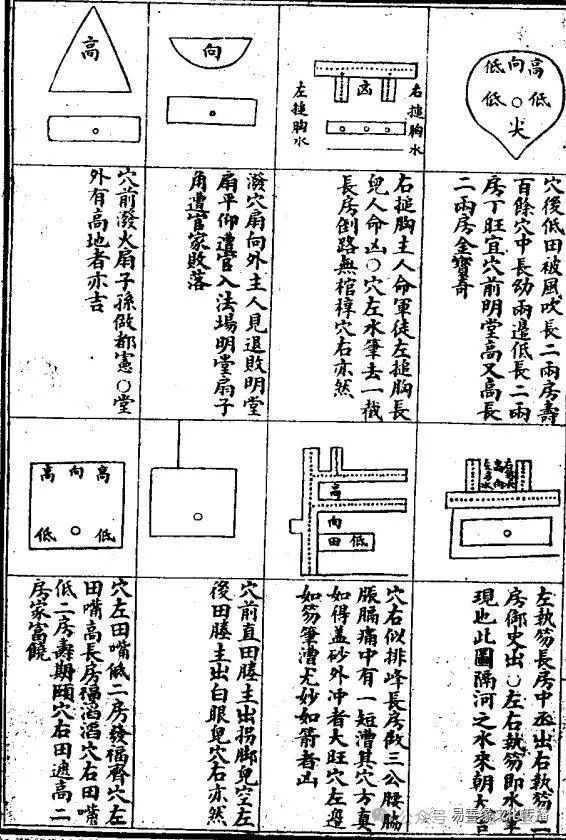 高向低
低低
尖
穴後低田被風吹長二兩房壽
百餘穴中長幼兩邊低長二兩
房丁旺宜穴前明堂高又高長
二兩房金寶奇
右搥胸水
凶
左搥胸水
右搥胸主人命軍徒左搥胸長
兒人命凶○穴左水筆去一截
長房倒路無棺槨穴右亦然
向
潑穴扇向外主人見退敗明堂
扇平仰遭官入法場明堂扇子
角遭官家敗落
高
穴前潑火扇子孫做都憲○堂
外有高地者亦吉
左執笏長房中丞出右執笏二
房御史出○左右執笏即水
現也此圖隔河之水來朝大吉
高
向
低田
穴右似排峰長房做三公腰腸
脹膈痛中有一短漕其穴方真
如得盖砂外冲者大旺穴左邊
如笏筆漕尤妙如箭者凶
穴前直田塍主出拐脚兒空左
後田塍主出白眼兒穴右亦然
高向高
低低
穴左田嘴低二房發福齊穴左
田嘴高長房福滔滔穴右田嘴
低二房壽期頤穴右田遶高二
房家富饒
公众号